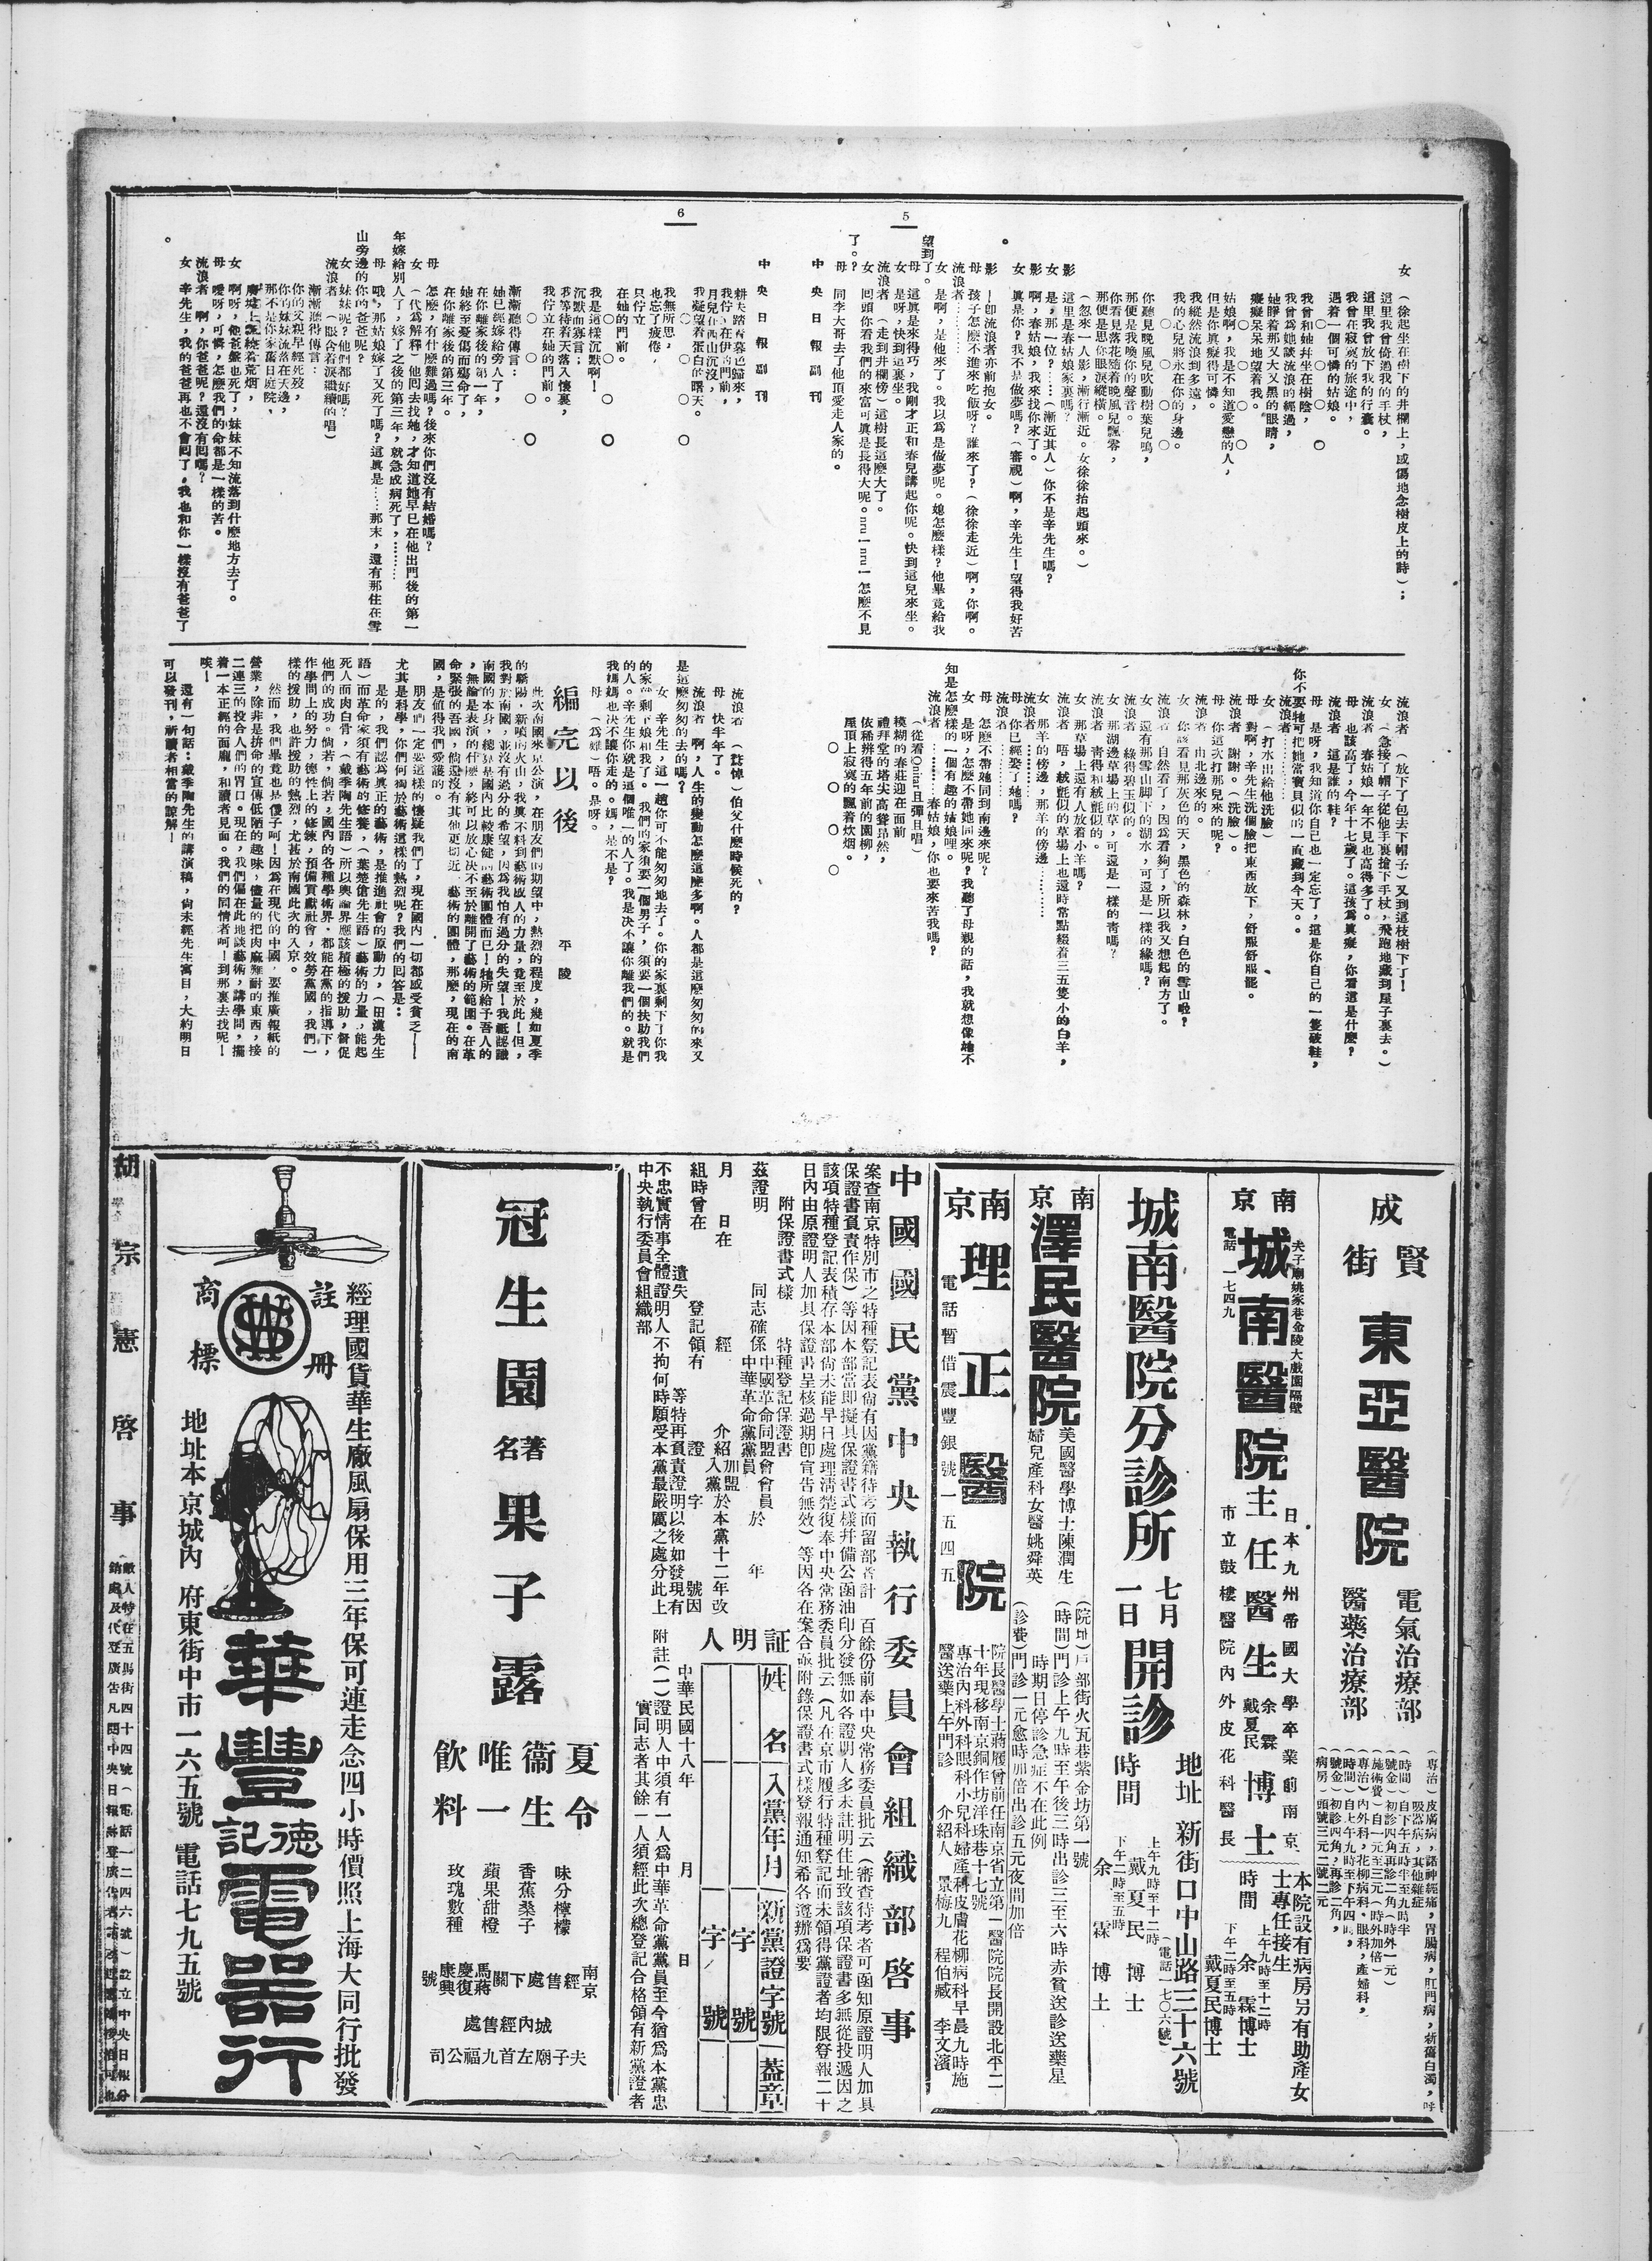 5
女 （徐起坐在樹下的井欄上，感傷地念樹皮上的詩）；
這里我曾倚過我的手杖，
這里我曾放下我的行囊。
我曾在寂寞的旅途中，
遇着一個可憐的姑娘。
○ ○ ○ ○
我曾和她幷坐在樹陰，
我曾爲她談流浪的經過，
她睜着那又大又黑的眼睛，
癡癡呆呆地望着我。
○ ○ ○ ○
姑娘啊，我是不知道愛戀的人，
但是你眞癡得可憐。
我縱然流浪到多遠，
我的心兒將永在你的身邊。
○ ○ ○ ○
你聽見晚風兒吹動樹葉兒鳴，
那便是我喚你的聲音。
你看見落花隨着晚風兒飄零，
那便是思你眼淚縱橫。
（忽來一人影，漸行漸近。女徐徐抬起頭來。）
影 這里是春姑娘家裏嗎？
女 是，那一位？……（漸近其人）你不是辛先生嗎？
影 啊，春姑娘，我來找你來了。
女 眞是你？我不是做夢嗎？（審視）啊，辛先生！望得我好苦。
影 －卽流浪者亦前抱女。
母 孩子怎麽不進來吃飯呀？誰來了？（徐徐走近）啊，你啊。
流浪者 …………
女 是啊，是他來了。我以爲是做夢呢。她怎麽樣？他畢竟給我望到了。
母 這眞是來得巧，我剛才正和春兒講起你呢。快到這兒來坐。
女 是呀，快到這裏坐。
流浪者 （走到井欄傍）這樹長這麽大了。
女 回頭你看我們的來富可眞是長得大呢。nru！nru！怎麽不見了。？
母 同李大哥去了他頂愛走人家的。
流浪者 （放下了包去下帽子）又到這枝樹下了！
女 （急接了帽子從他手裏搶下手杖，飛跑地藏到屋子裏去。）
流浪者 春姑娘一年不見也高得多了。
母 也該高了，今年十七歲了。這孩爲眞癡，你看這是什麽？
流浪者 這是誰的鞋？
母 是呀，我知道你自己也一定忘了，這是你自己的一隻破鞋，你不要牠可把她當寶貝似的一直藏到今天。。
流浪者 …………
女 （打水出給他洗臉）
母 對啊，辛先生洗個臉把東西放下，舒服舒服罷。
流浪者 謝謝。（洗臉）。
母 你這次打那兒來的呢？
流浪者 由北邊來的。
女 你該看見那灰色的天，黑色的森林，白色的雪山啦？
流浪者 自然看了，因爲看夠了，所以我又想起南方了。
女 還有那雪山脚下的湖水，可還是一樣的綠嗎？
流浪者 綠得碧玉似的。
女 那湖邊草場上的草，可還是一樣的青嗎？
流浪者 青得和絨氈似的。
女 那草場上還有人放着小羊嗎？
流浪者 唔，絨氈似的草場上也還時常點綴着三五隻小的白羊，
女 那羊的傍邊，那羊的傍邊…………
流浪者 …………
母 你已經娶了她嗎？
流浪者 …………
母 怎麽不帶她同到南邊來呢？
女 是呀，怎麽不帶她同來呢？我聽了母親的話，我就想像她不知是怎麽樣的一個有趣的姑娘哩。
流浪者 …………春姑娘，你也要來苦我嗎？
（從着Guitar且彈且唱）
模糊的春莊迎在面前
禮拜堂的塔尖高聳昂然，
依稀辨得五年前的園柳，
屋頂上寂寞的飄着炊烟。
○ ○ ○ ○
中央日報副刊
6
中央日報副刊
耕夫踏着暮色歸來，
我佇立在伊的門前，
月兒在西山沉沒，
我凝望着蛋白的曙天。
○ ○ ○ ○
我無所思，
也忘了疲倦，
只佇立
在她的門前。
○ ○ ○ ○
我是這樣沉默啊！
沉默而寡言；
我等待着天落入懷裏，
我佇立在她的門前。
○ ○ ○ ○
漸漸聽得傳言：
她已經嫁給旁人了，
在你離家後的第一年，
她終至憂傷而殤命了，
在你離家後的第三年。
母 怎麽，有什麽難過嗎？後來你們沒有結婚嗎？
女 （代爲解釋）他回去找她，才知道她早已在他出門後的第一年嫁給別人了，嫁了之後的第三年，就急成病死了，…………
母 哦，那姑娘嫁了又死了嗎？這眞是……那末，還有那住在雪山旁邊的你的爸爸呢？
女 妹妹呢？他們都好嗎？
流浪者 （眼含着淚繼續的唱）
漸漸聽得傳言：
你的父親早經死歿，
你的妹妹流落在天邊，
那不是你家舊日庭院，
廢墟上飄繞着荒烟，
女 啊呀，他爸爸也死了，妹妹不知流落到什麽地方去了。
母 噯呀，可憐，怎麽我們的命都是一樣的苦。
流浪者 啊，你爸爸呢？還沒有回嗎？
女 辛先生，我的爸爸再也不會回了，我也和你一樣沒有爸爸了。
流浪者 （驚悼）伯父什麽時候死的？
母 快半年了。
流浪者 啊，人生的變動怎麽這麽多啊。人都是這麽匆匆的來又是這麽匆匆的去的嗎？
女 辛先生，這一趟你可不能匆匆地去了。你的家裏剩下了你我的家就剩下娘和我了。我們的家須要一個男子，須要一個扶助我們的人。辛先生你就是這個唯一的人了。我是決不讓你離我們的。就是我媽媽也決不讓你走的。媽，是不是？
母 （爲難）唔。是呀。
編完以後
平陵
此次南國來京公演，在朋友們的期望中，熱烈的程度，幾如夏季的驕陽，新噴的火山，我眞不料到藝術成人的力量，竟至於此！但，我對於南國，並沒有過分的希望，因爲我怕有過分的失望！我祗認識南國的本身，總算是國內比較康健的藝術團體而已！牠所給予吾人的，無論是表演的什麽，終可以放心決不至於離開了藝術的範圍。在革命緊張的吾國，倘還沒有其他更切近藝術的團體，那麽，現在的南國，是值得我們愛護的。
朋友們一定要這樣的懷疑我們了，現在國內一切都感受貧乏——尤其是科學，你們何獨於藝術這樣的熱烈呢？我們的回答是：
是的，我們認爲眞正的藝術，是推進社會的原動力，（田漢先生語）而革命家須有藝術的修養，（葉楚傖先生語）藝術的力量，能起死人而肉白骨，（戴季陶先生語）所以輿論界應該積極的援助，督促他們的成功。倘若，倘若，國內的各種學術界，都能在黨的指導下，作學問上的努力，德性上的修鍊，預備貢獻社會，效勞黨國，我們一樣的援助，也許援助的熱烈，尤甚於南國此次的入京。
然而，我們畢竟也是傻子呵！因爲在現代的中國，要推廣報紙的營業，除非是拚命的宣傳低陋的趣味，儘量的把肉麻難耐的東西，接二連三的投合人們的胃口。現在，我們偏在此地談藝術，講學問，擺着一本正經的面龐，和讀者見面。我們的同情者呵！到那裏去找呢！唉！
還有一句話：戴季陶先生的講演稿，尙未經先生寓目，大約明日可以發刊，祈讀者相當的諒解！
成賢街
東亞醫院
電氣治療部
醫藥治療部
（專治）皮膚病，諸神經痛，胃腸病，肛門病，新舊白濁，呼吸器病，其他雜症
（時間）自下午五時半至九時半
（號金）初診四角再診二角（時外一元）
（施術費）自一元至三元（時外加倍）
（專治）內外科，花柳病科，眼科，產婦科，
（時間）自上午九時至下午四時，
（號金）初診四角，再診二角，
（病房）頭號三元二號二元
南京
城南醫院
夫子廟姚家巷金陵大戲園隔壁
電話 一七四九
主任醫生
日本九州帝國大學卒業前南京
市立鼓樓醫院內外皮花科醫長
余霖
戴夏民
博士
本院設有病房另有助產女士專任接生
時間
上午九時至十二時
余霖博士
下午二時至五時
戴夏民博士
城南醫院分診所
七月一日
開診
地址 新街口中山路三十六號
時間
上午九時至十二時
戴夏民 博士
（電話一七〇六號）
下午二時至五時
余霖 博士
南京
澤民醫院
美國醫學博士陳潤生
婦兒產科女醫姚舜英
（院址）戶部街火瓦巷紫金坊第一號
（時間）門診上午九時至午後三時出診三至六時赤貧送診送藥星
時期日停診急症不在此例
（診費）門診一元愈時加倍出診五元夜間加倍
南京
理正醫院
電話暫借震豐銀號一五四五
院長醫學士蔣履曾前任南京省立第一醫院院長開設北平二
十年現移南京銅作坊洋珠巷十七號
專治內科外科眼科小兒科婦產科皮膚花柳病科早晨九時施
醫送藥上午門診 介紹人 景梅九 程伯臧 李文濱
中國國民黨中央執行委員會組織部啓事
案查南京特別市之特種登記表尙有因黨籍待考而留部者計 百餘份前奉中央常務委員批云（審查待考者可函知原證明人加具
保證書負責作保）等因本部當即擬具保證書式樣幷備公函油印分發無如各證明人多未註明住址致該項保證書多無從投遞因之
該項特種登記表積存本部尙未能早日處理清楚復奉中央常務委員批云（凡在京市履行特種登記而未領得黨證者均限登報二十
日內由原證明人加具保證書呈核過期卽宣告無效）等因各在案合亟附錄保證書式樣登報通知希各遵辦爲要
附保證書式樣 特種登記保證書
茲證明 同志確係中國革命同盟會會員
中華革命黨黨員 於 年
月 日在 經 介紹加盟
入黨 於本黨十二年改
組時曾在 登記領有 證 字 號因
遺失 等特再負責證明以後如發現有
不忠實情事全體證明人不拘何時願受本黨最嚴厲之處分此上
中央執行委員會組織部
証明人
姓名 入黨年月 新黨證字號 蓋章
字 號
字 號
中華民國十八年 月 日
附註（一）證明人中須有一人爲中華革命黨黨員至今猶爲本黨忠
實同志者其餘一人須經此次總登記合格領有新黨證者
冠生園
著名
果子露
夏令
衞生
唯一
飲料
味分檸檬
香蕉桑子
蘋果甜橙
玫瑰數種
南京
經售處
下關
馬蔣
慶復
康興
號
城內經售處
夫子廟左首九福公司
經理國貨華生廠風扇保用三年保可連走念四小時價照上海大同行批發
註冊
商標
華豐德記電器行
地址本京城內 府東街中市一六五號 電話七九五號
胡宗憲啓事
敝人特在五馬街四十四號（電話一二四六號）設立中央日報分
銷處及代登廣告凡閱中央日報